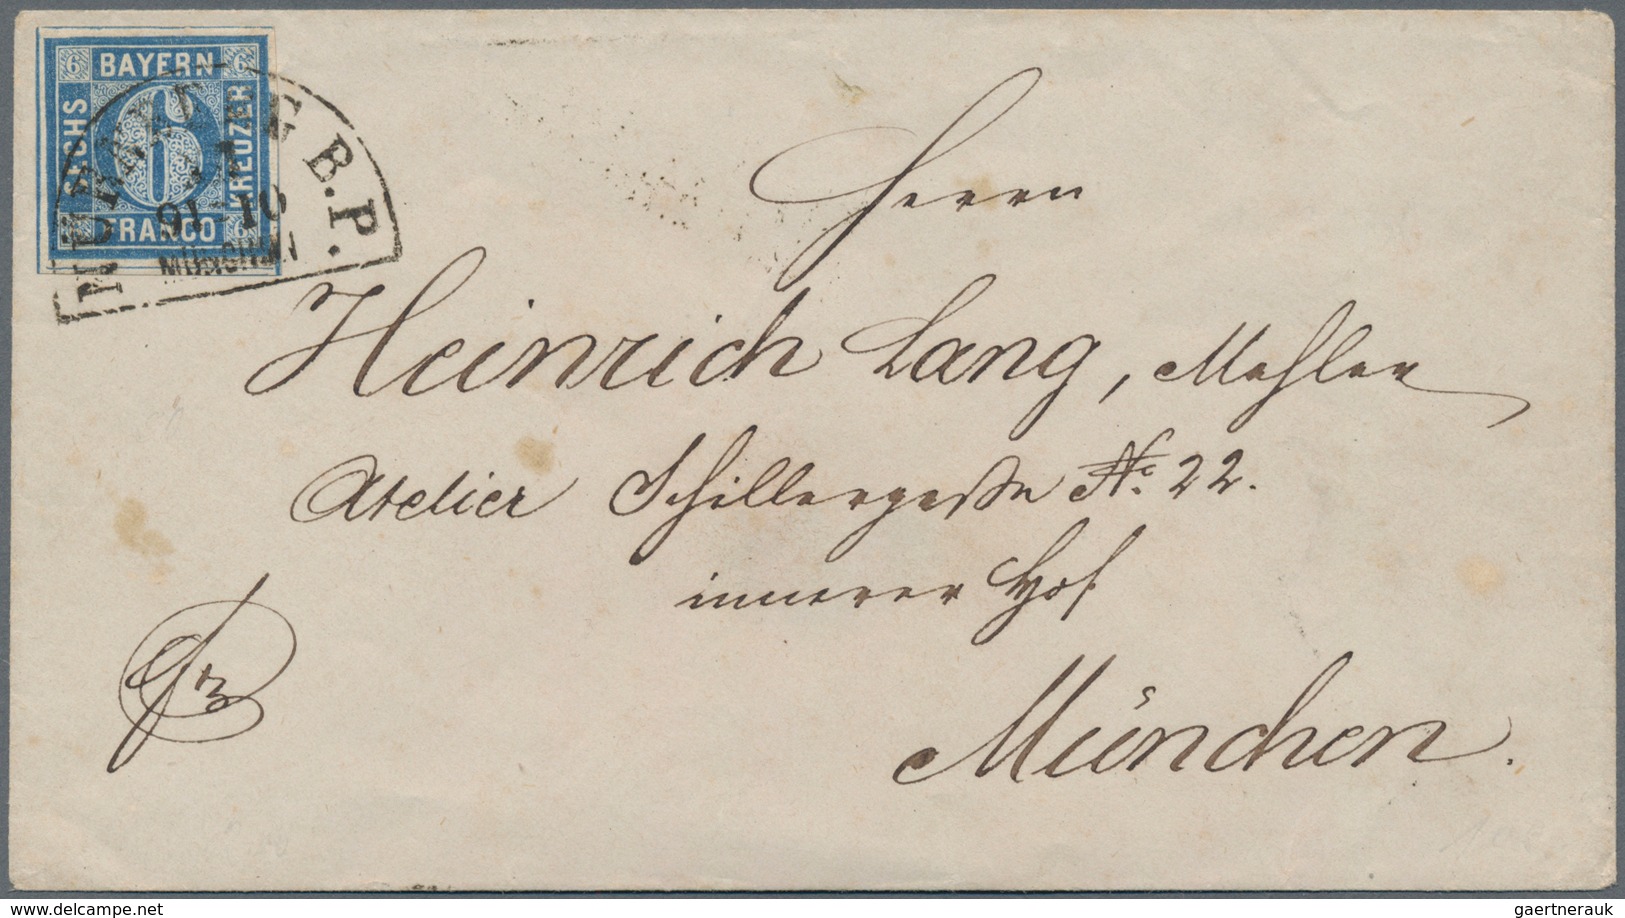 6 BAYERN 6
SECHS
KREUZER
6
FRANCO 6
NÜRNBERG B.P.
MÜNCHEN
Herrn
Heinrich Lang, Mahler
Atelier Schillergaße No. 22.
innerer Hof
München.
delcampe.net
gaertnerauk